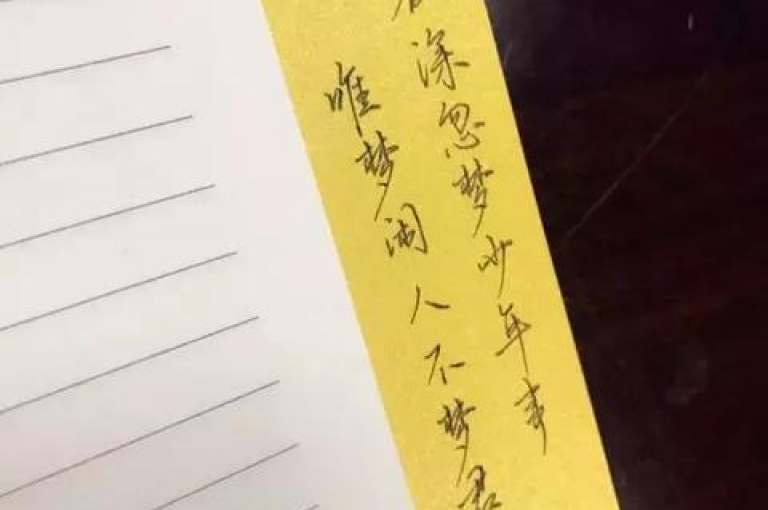 深忽梦少年事
唯梦闲人不梦君